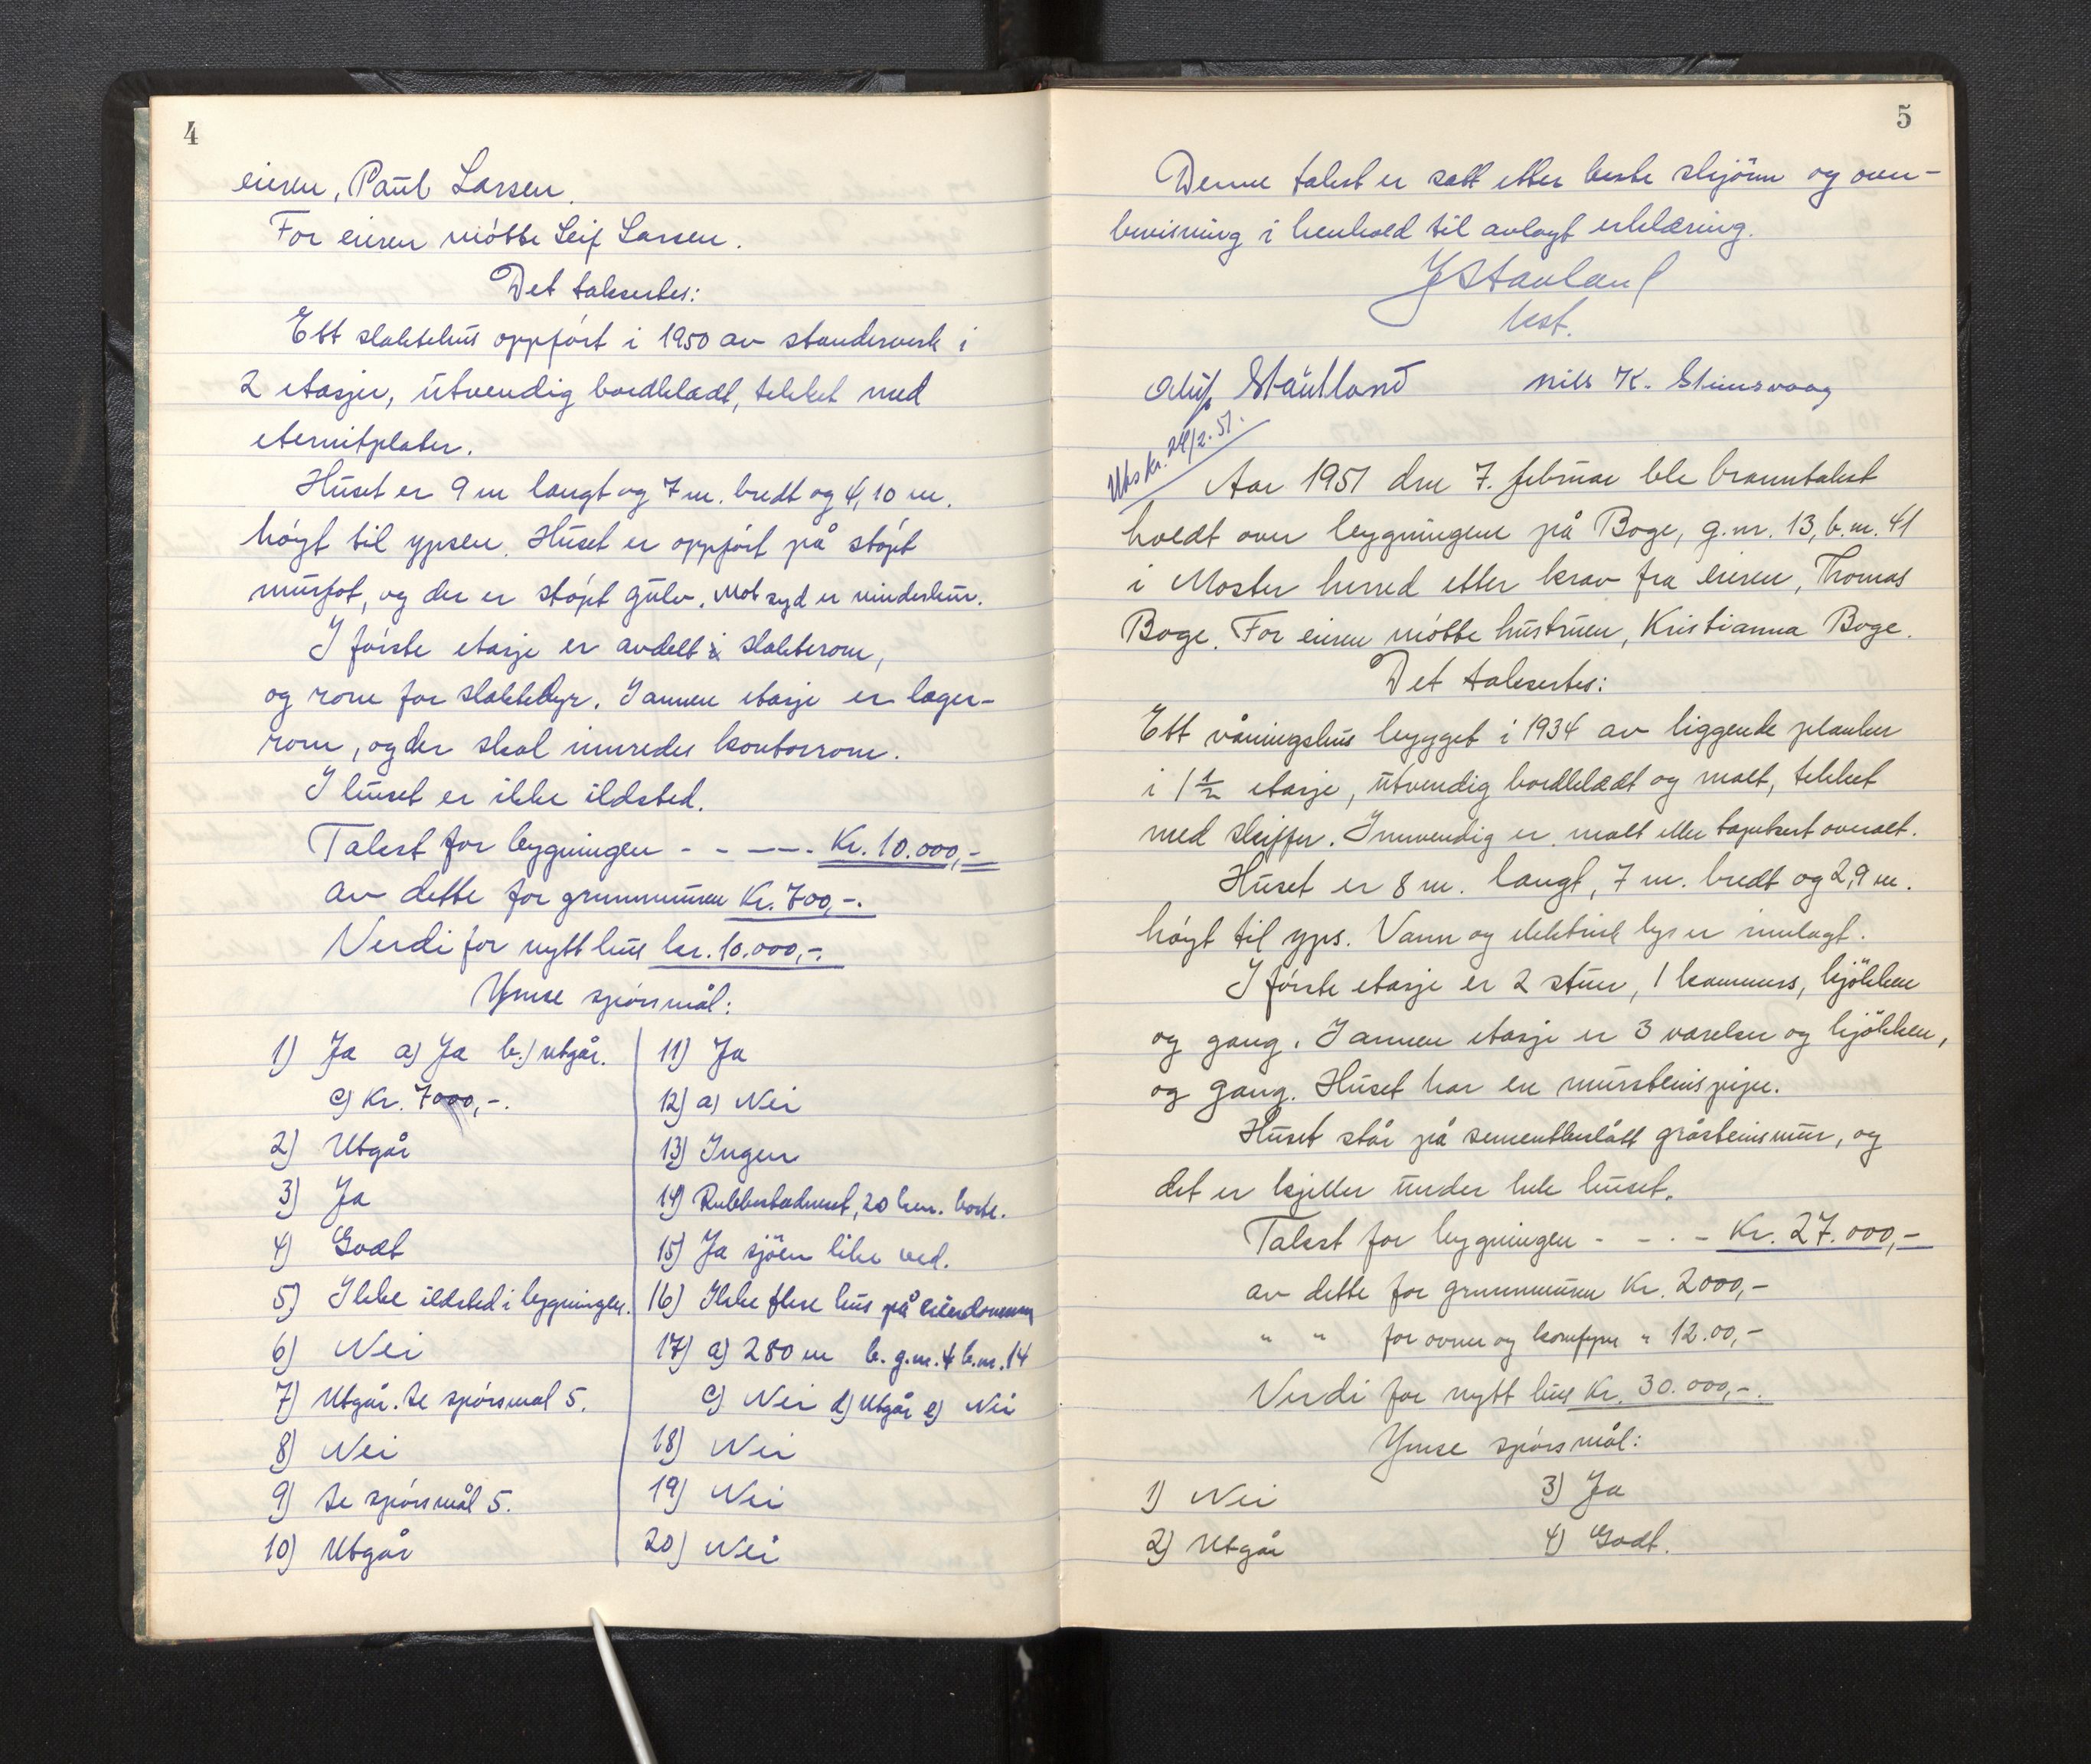 4
eieren, Paul Larsen.
For eieren møtte Leif Larsen.
Det taksertes:
Ett slaktehus oppført i 1950 av standerverk i
2 etasjer, utvendig bordkledt, tekket med
eternitplater.
Huset er 9 m langt og 7 m. bredt og 4,10 m.
høyt til ypsen. Huset er oppført på støpt
murfot, og der er støpt gulv. Mot syd er vinderskur.
I første etasje er avdelt i slakterom,
og rom for slaktedyr. I annen etasje er lager-
rom, og der skal innredes kontorrom.
I huset er ikke ildsted.
Takst for bygningen - - - - - Kr. 10.000,-
av dette for grunnmuren Kr. 700,-.
Verdi for nytt hus kr. 10.000,-.
Ymse spørsmål:
1) Ja a) Ja b.) utgår.
c) Kr. 7000,-.
2) Utgår
3) Ja
4) Godt
5) Ikke ildsted i bygningen.
6) Nei
7) Utgår. Se spørsmål 5.
8) Nei
9) Se spørsmål 5.
10) Utgår
11) Ja
12) a) Nei
13) Ingen
14) Rubbestadneset, 20 km. borte.
15) Ja sjöen like ved.
16) Ikke flere hus på eiendommen
17) a) 280 m b. g.nr. 4 b.nr. 14
c) Nei d) Utgår e) Nei
18) Nei
19) Nei
20) Nei
5
Denne takst er satt etter beste skjönn og over-
bevisning i henhold til avlagt erklæring.
J Stavland
lest.
Oluf Stautland Nils K. Steinsvaag
Utskr. 24/2.51.
Aar 1951 den 7. februar ble branntakst
holdt over bygningene på Boge, g.nr. 13, b.nr. 41
i Moster herred etter krav fra eieren, Thomas
Boge. For eieren møtte hustruen, Kristianna Boge.
Det taksertes:
Ett våningshus bygget i 1934 av liggende planker
i 1 1/2 etasje, utvendig bordkledt og malt, tekket
med skiffer. Innvendig er malt eller tapetsert overalt.
Huset er 8 m. langt, 7 m. bredt og 2,9 m.
høyt til yps. Vann og elektrisk lys er innlagt.
I første etasje er 2 stuer, 1 kammers, kjökken
og gang. I annen etasje er 3 værelser og kjökken,
og gang. Huset har en mursteinspipe.
Huset står på sementbeslått gråsteinsmur, og
det er kjeller under hele huset.
Takst for bygningen - - . - Kr. 27.000,-
av dette for grunnmuren Kr. 2000,-
" " for ovner og komfyrer " 12.00,-
Verdi for nytt hus Kr. 30.000,-.
Ymse spørsmål:
1) Nei
2) Utgår
3) Ja
4) Godt.